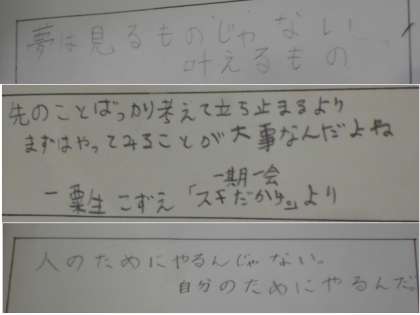 夢は見るものじゃない
叶えるもの
先のことばっかり考えて立ち止まるより
まずはやってみることが大事なんだよね
一期一会
一粟生 こずえ「スキだから。」より
人のためにやるんじゃない。
自分のためにやるんだ。